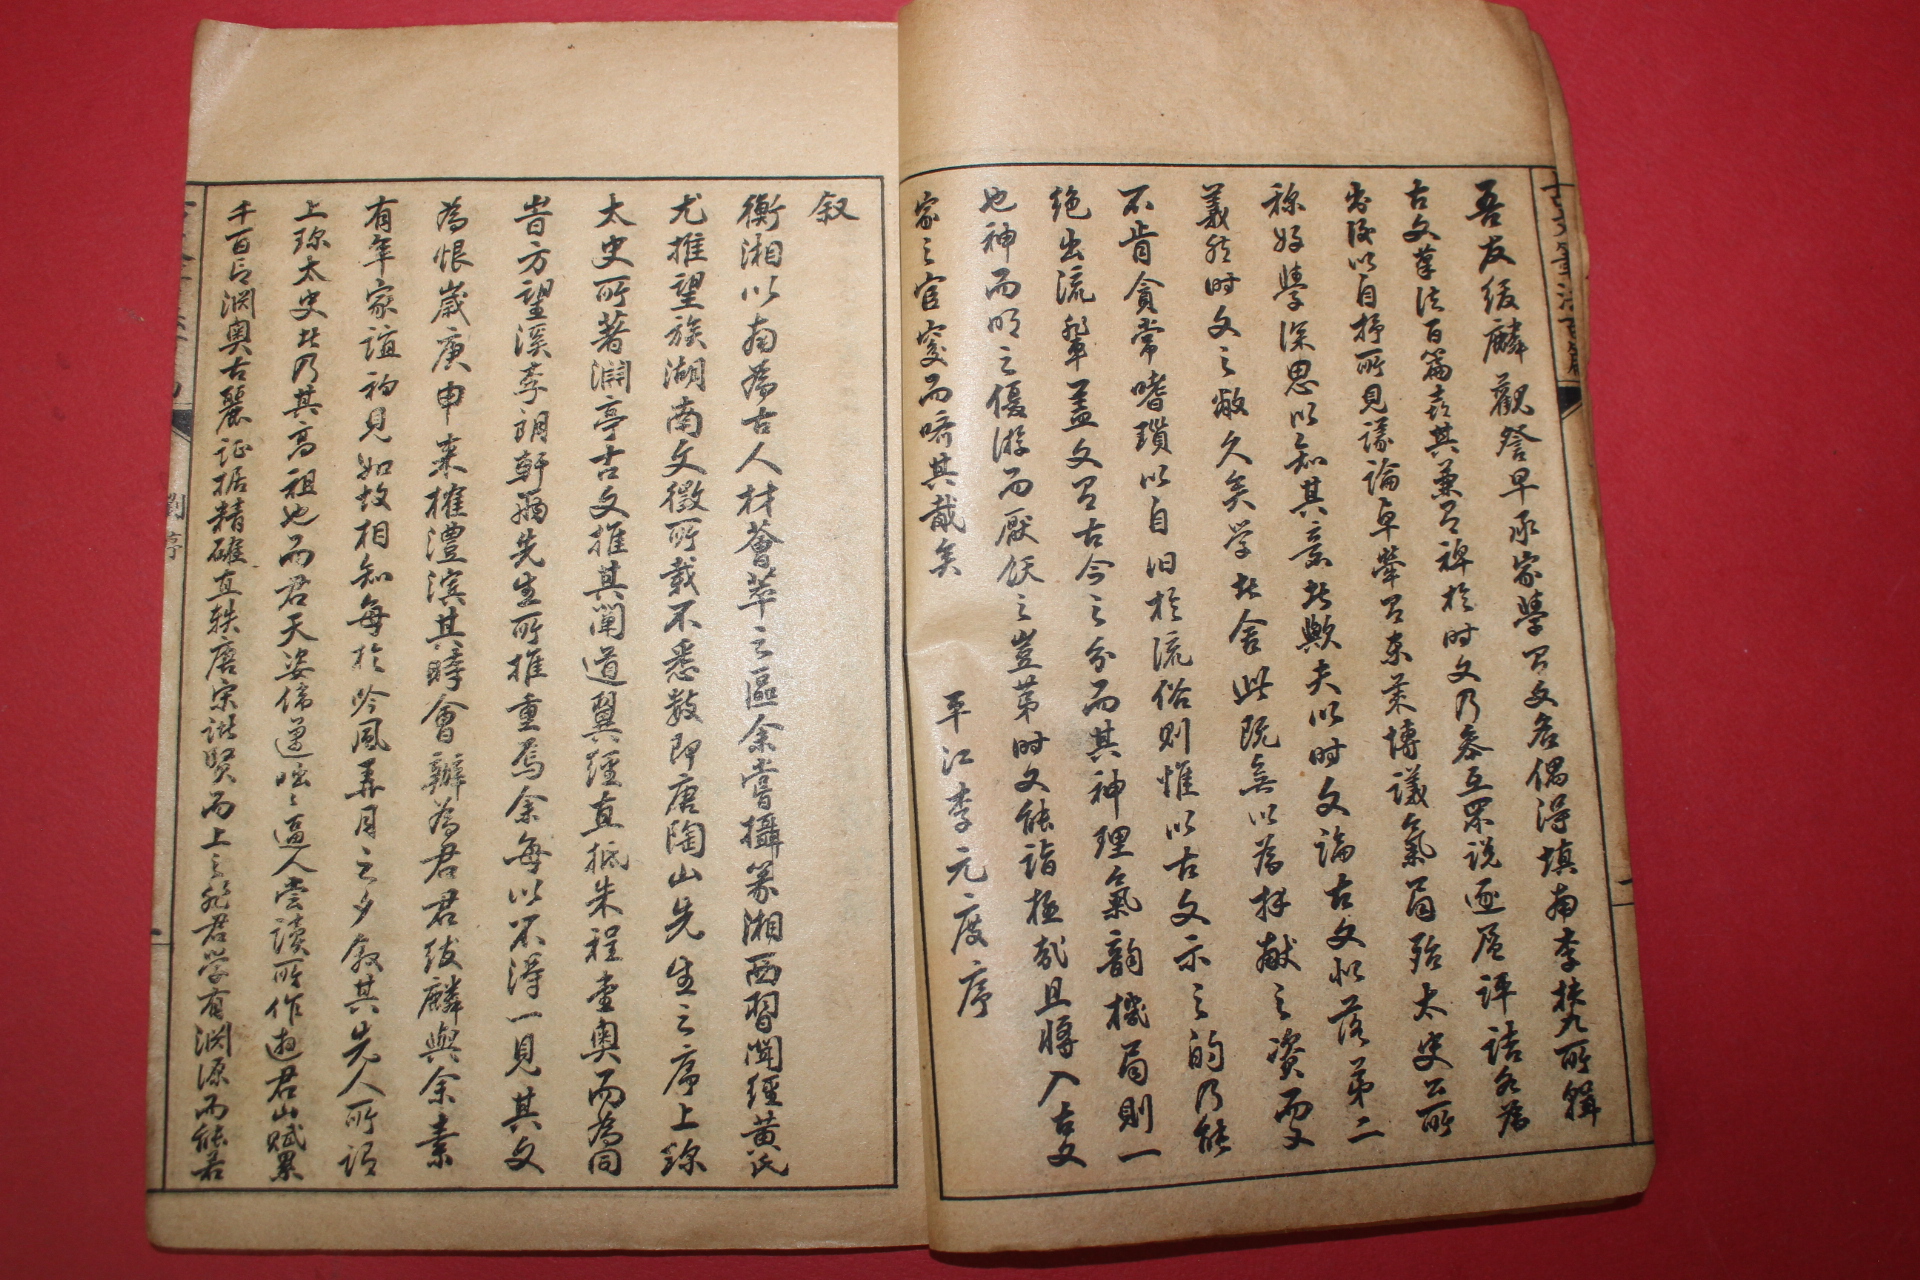 古文筆法百篇
吾友紱麟觀詧早承家學習文名偶得塡南李扶九所輯
古文筆法百篇喜其兼可裨於时文乃参互眾说逐层评诘名為
书後以自抒所見議論卓犖習东莱博議氣局殆太史公所
称好學深思心知其意者歟夫以时文論古文似落第二
義然时文之敝久矣学者舍此既無以為拜献之资而又
不肯貪常嗜瑣以自汩於流俗则惟以古文示之的乃能
绝出流輩盖文習古今之分而其神理氣韵機局則一
也神而明之優游而厭饫之豈第时文能詣極哉且將入古文
家之官窔而嚌其胾矣
平江李元度序
叙
衡湘以南為古人材薈萃之區余嘗攝篆湘西習聞經黄氏
尤推望族湖南文徵所载不悉数即唐陶山先生之序上琛
太史所著澗亭古文推其闡道翼經直抵朱程堂奥而為同
昔方望溪李朗軒兩先生所推重焉余每以不得一見其文
為恨歲庚申来榷澧滨其時會辦為君君紱麟與余素
有年家誼初見如故相知每於吟風弄月之夕叙其先人所謂
上琛太史者乃其高祖也而君天姿倜邁咄咄逼人尝读所作遊君山赋累
千百言渊奥古麗证据精確直轶唐宋诸賢而上之非君学有渊源而能若
劉序